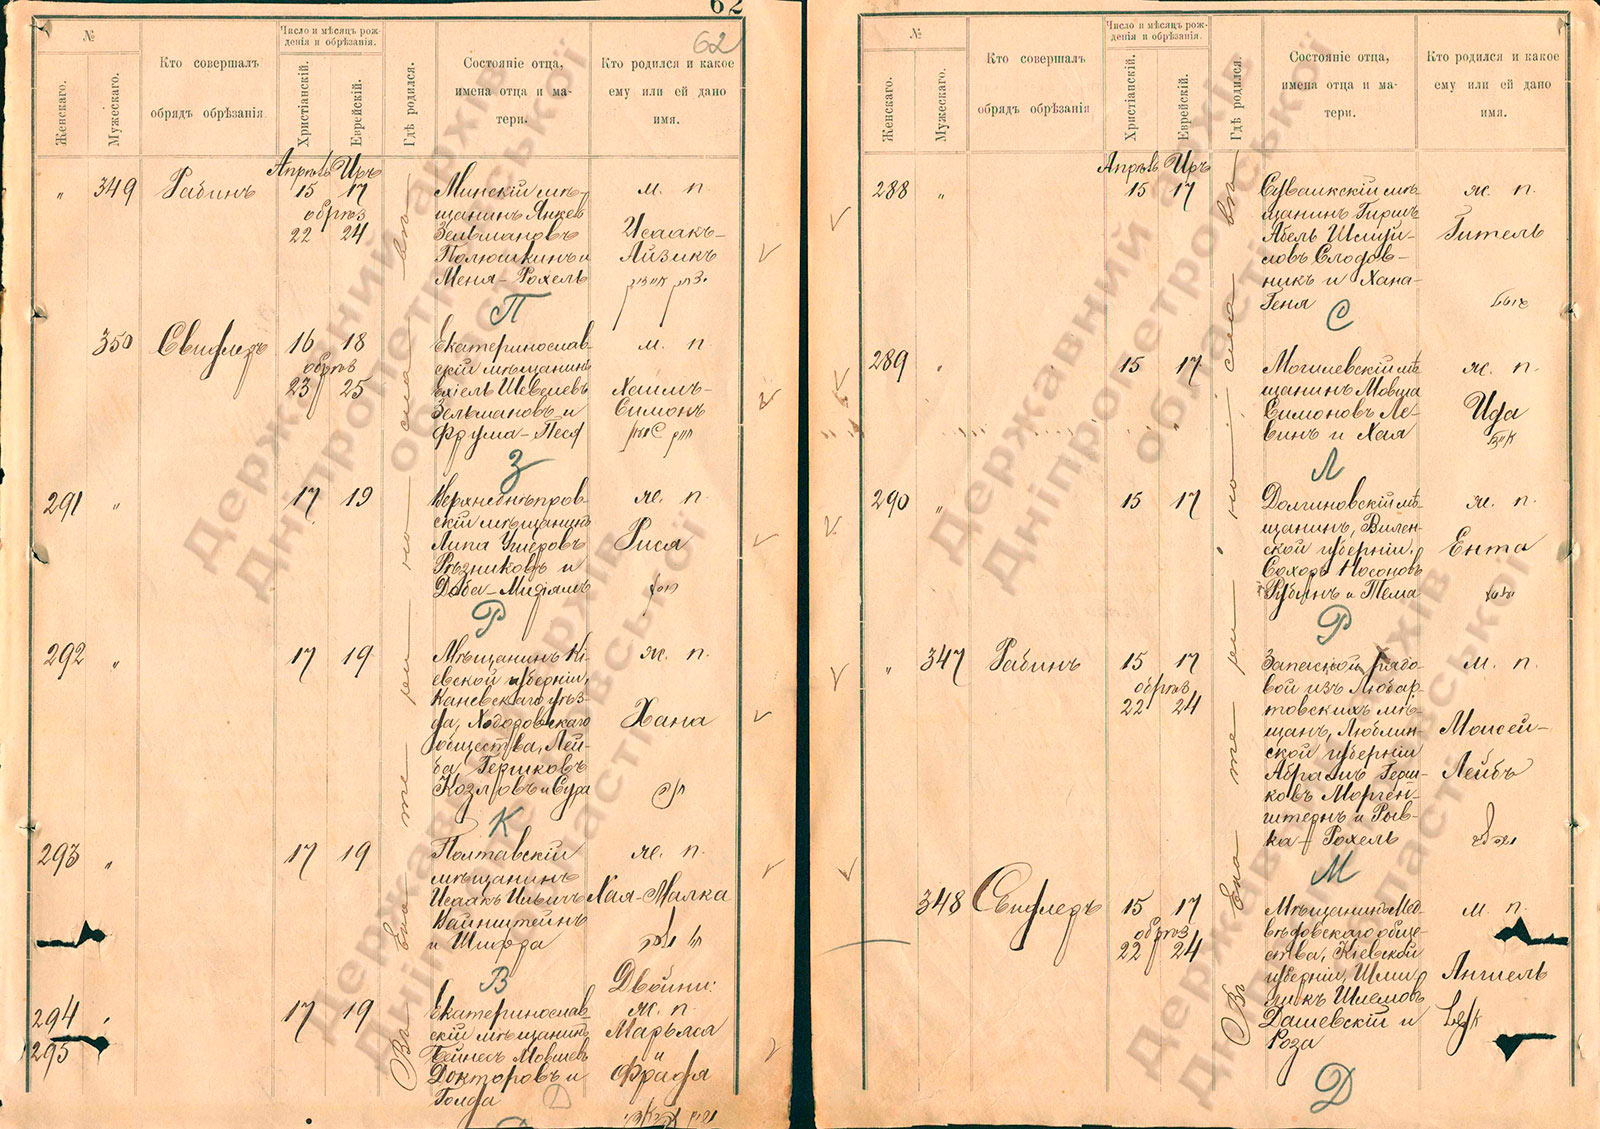 62
62
№
Женскаго.
Мужескаго.
Кто совершалъ
обрядъ обрѣзанія
Число и мѣсяцъ рож-
денія и обрѣзанія.
Христіанскій.
Еврейскій.
Гдѣ родился.
Состояніе отца,
имена отца и ма-
тери.
Кто родился и какое
ему или ей дано
имя.
Апрѣль Иръ
" 349 Рабинъ 15 17
обрѣз
22 24
Минскій мѣ-
щанинъ Янкев
Зельмановъ
Полюшкинъ и
Меня-Рохель
м. п.
Исаакъ-
Айзикъ
П
350 Свифлеръ 16 18
обрѣз
23 25
Екатеринослав-
скій мѣщанинъ
Ехіель Шевелевъ
Зельмановъ и
Фрума-Песя
м. п.
Хаимъ-
Симонъ
З
291 " 17 19
Верхнеднѣпров-
скій мѣщанинъ
Липа Ушеровъ
Рѣзниковъ и
Доба-Миріямъ
ж. п.
Рися
Р
292 " 17 19
Мѣщанинъ Кі-
евской губерніи,
Каневскаго уѣз-
да, Ходоровскаго
общества, Лей-
ба Гершковъ
Козловъ и Сура
ж. п.
Хана
К
293 " 17 19
Полтавскій
мѣщанинъ
Исаакъ Ицковичъ
Вайнштейнъ
и Шифра
ж. п.
Хая-Малка
В
294 "
295 17 19
Екатеринослав-
скій мѣщанинъ
Бейнесъ Мовшевъ
Докторовъ и
Голда
Двойни:
ж. п.
Марьяся
и
Фрадя
Д
Въ Екатеринославѣ
№
Женскаго.
Мужескаго.
Кто совершалъ
обрядъ обрѣзанія
Число и мѣсяцъ рож-
денія и обрѣзанія.
Христіанскій.
Еврейскій.
Гдѣ родился.
Состояніе отца,
имена отца и ма-
тери.
Кто родился и какое
ему или ей дано
имя.
Апрѣль Иръ
288 " 15 17
Сувалкскій мѣ-
щанинъ Гиршъ
Абель Шмуй-
ловъ Слодов-
никъ и Хана-
Геня
ж. п.
Гитель
С
289 " 15 17
Могилевскій мѣ-
щанинъ Мовша
Симоновъ Ле-
винъ и Хая
ж. п.
Ида
Л
290 " 15 17
Долгиновскій мѣ-
щанинъ, Вилен-
ской губерніи,
Сохоръ Носоновъ
Рубинъ и Тема
ж. п.
Ента
Р
" 347 Рабинъ 15 17
обрѣз
22 24
Запасной рядо-
вой изъ Любар-
товскихъ мѣ-
щанъ, Люблин-
ской губерніи
Абрамъ Герш-
ковъ Морген-
штернъ и Рыв-
ка-Рохель
м. п.
Моисей-
Лейбъ
М
348 Свифлеръ 15 17
обрѣз
22 24
Мѣщанинъ Мед-
вѣдовскаго обще-
ства, Кіевской
губерніи,
Дашевскій и
Роза
м. п.
Аншель
Д
Въ Екатеринославѣ
Державний архів
Дніпропетровської
області